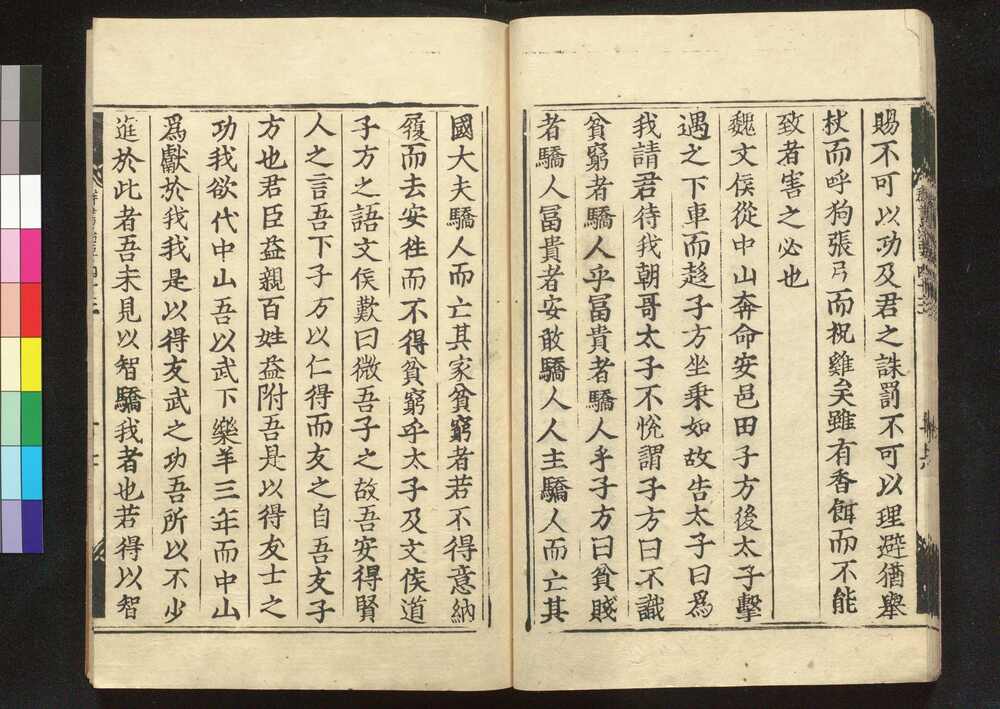 賜不可以功及君之誅罰不可以理避猶舉
杖而呼狗張弓而祝雞矣雖有香餌而不能
致者害之必也
魏文侯從中山奔命安邑田子方後太子擊
遇之下車而趍子方坐乗如故告太子曰爲
我請君待我朝哥太子不悅謂子方曰不識
貧窮者驕人乎冨貴者驕人乎子方曰貧賤
者驕人冨貴者安敢驕人人主驕人而亡其
國大夫驕人而亡其家貧窮者若不得意納
履而去安徃而不得貧窮乎太子及文侯道
子方之語文侯歎曰微吾子之故吾安得賢
人之言吾下子方以仁得而友之自吾友子
方也君臣益親百姓益附吾是以得友士之
功我欲代中山吾以武下樂羊三年而中山
爲獻於我我是以得友武之功吾所以不少
進於此者吾未見以智驕我者也若得以智